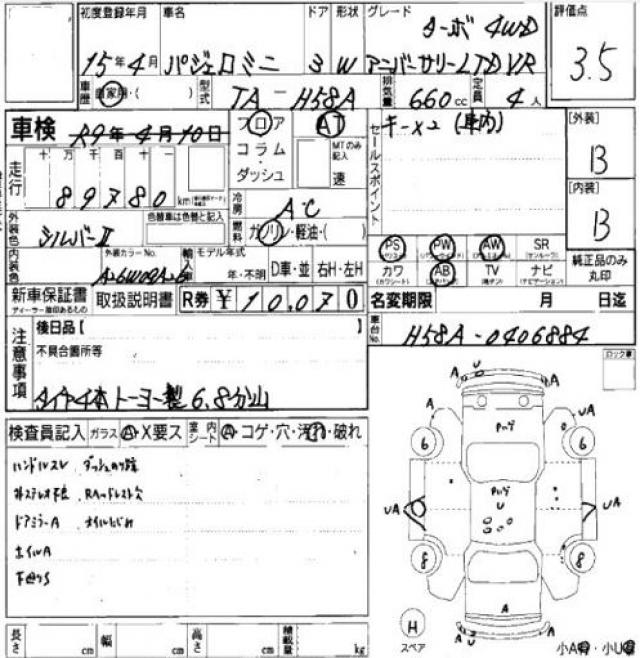 初度登録年月 車名 ドア 形状 グレード 評価点
ターボ 4WD
15年4月 パジェロミニ 3 W アニバーサリーLTD VR 3.5
車歴 自家用・( ) 型式 TA-H58A 排気量 660cc 定員 4人
車検 R9年4月10日 フロア AT セールスポイント キー×2 (車内) [外装]
コラム・ダッシュ MTのみ記入 速 B
走行 十万千百十一
89780km
冷房 A・C [内装]
外装色 シルバーII 色替車は色替と記入 燃料 ガソリン・軽油・( ) B
外装カラーNo. 輸入車 モデル年式 PS PW AW SR
内装色 年・不明 D車・並 右H・左H カワ AB TV ナビ 純正品のみ丸印
(カワシート) (ナビゲーション)
新車保証書 取扱説明書 R券 ¥10,070 名変期限 月 日迄
ディーラー捺印あるもの
車台No. H58A-0406884
注意事項 後日品【 】
不具合箇所等
タイヤ4本トーヨー製6.8分山
ロック車
検査員記入 ガラス A・X要ス 室内シート A・コゲ・穴・汚れ・破れ
ハンドルスレ ダッシュのり跡
ドアミラーA オイルにじみ
ホイルA
下廻りS
A U A
A UA
6 6
UA UA
U
8 8
A
H
スペア
A U A
小A有・小U有
長さ cm 幅 cm 高さ cm 積載量 kg